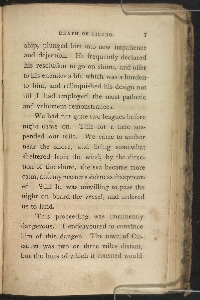 DEATH OF CICERO. 7
ship, plunged him into new impatience
and dejection. He frequently declared
his resolution to go on shore, and offer
to his enemies a life which was a burden
to him, and relinquished his design not
till I had employed the most pathetic
and vehement remonstrances.
We had not gone two leagues before
night came on. This for a time sus-
pended our toils. We came to anchor
near the shore, and being somewhat
sheltered from the wind, by the direc-
tion of the shore, the sea became more
calm, and my master's sickness disappear-
ed. Still he was unwilling to pass the
night on board the vessel, and ordered
us to land.
This proceeding was imminently
dangerous. I endeavoured to convince
him of this danger. The town of
was two or three miles distant,
but the huts of which it consisted would